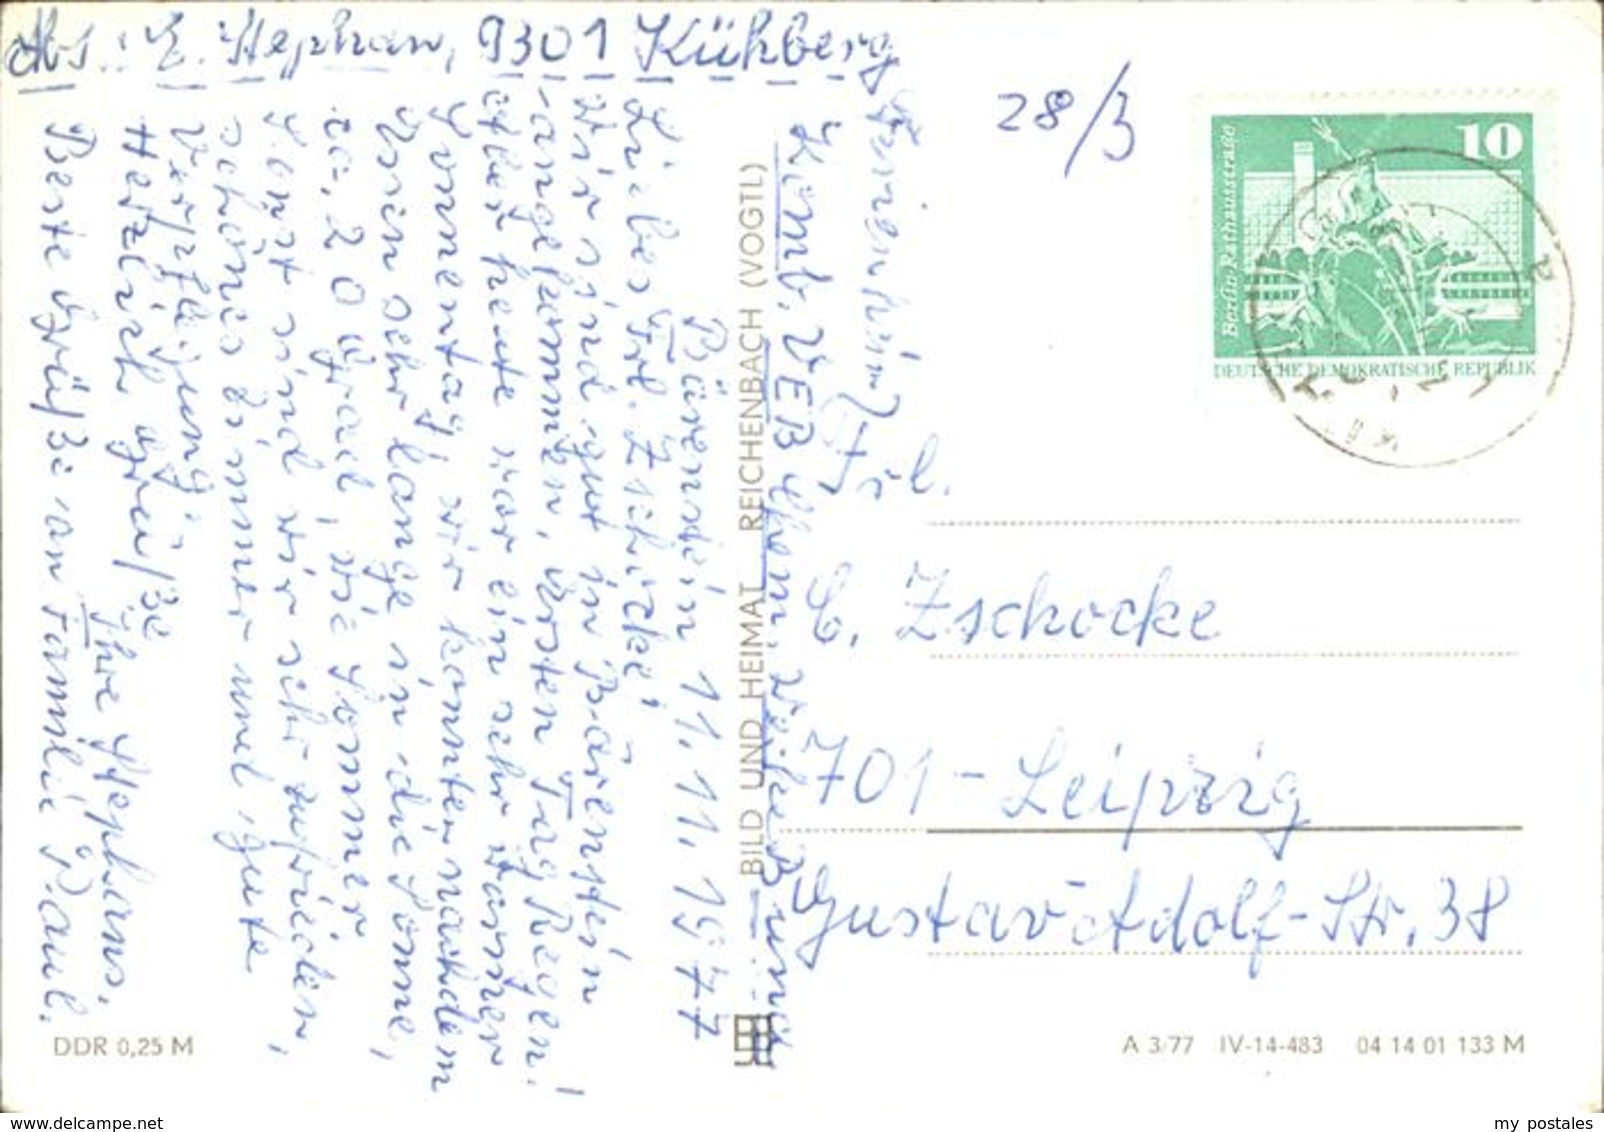 Abs.: E. Stephan, 9301 Kühberg
Ferienheim
Komb. VEB Chem. Werke Buna
28/3
Bärenstein 11.11.1977
Liebes Frl. Zschocke!
Wir sind gut in Bärenstein
angekommen, ersten Tag Regen!
Aber heute war ein sehr warmer
Sonnentag, wir konnten nachdem
sehr lange in die Sonne,
ca. 20 Grad, wie Sommer
Sonst sind wir sehr zufrieden,
schönes Zimmer und gute
Verpflegung.
Herzlich grüßt
Ihre Stephans.
Beste Grüße an Familie Paul.
BILD UND HEIMAT REICHENBACH (VOGTL)
10
Berlin, Rathausstraße
DEUTSCHE DEMOKRATISCHE REPUBLIK
Frl.
C. Zschocke
701-Leipzig
Gustav Adolf-Str. 38
DDR 0,25 M
A 3/77 IV-14-483 04 14 01 133 M
www.delcampe.net
my_postales